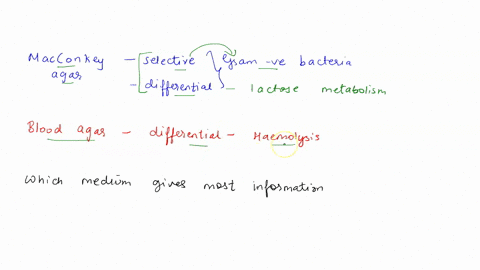 MacConkey - selective Gram -ve bacteria
agar - differential - lactose metabolism
Blood agar - differential - Haemolysis
which medium gives most information